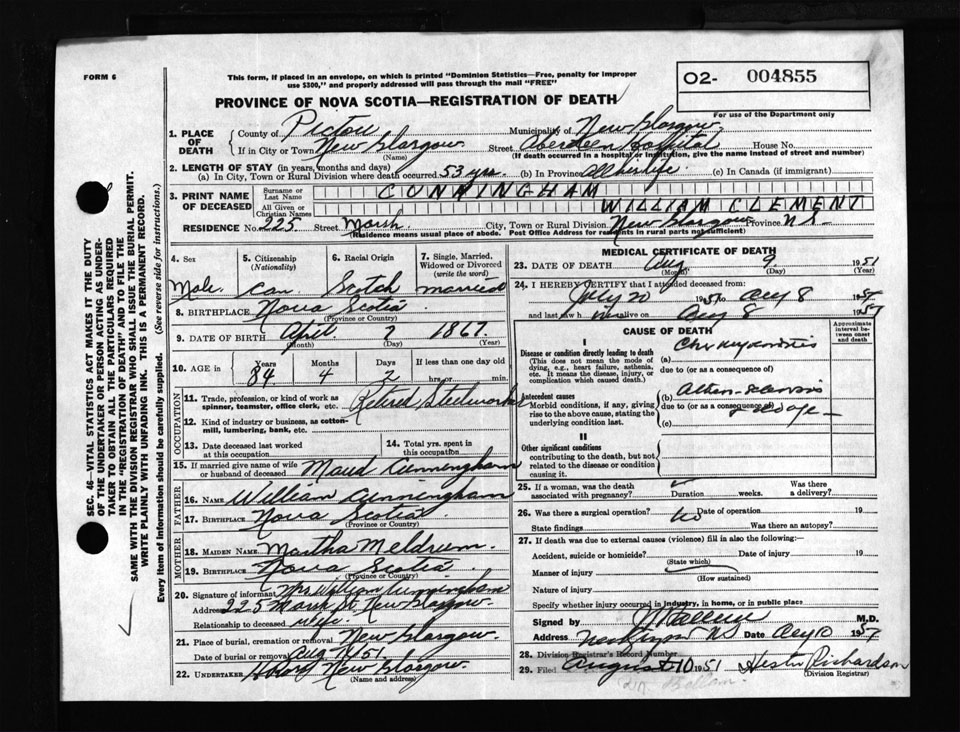 FORM 6
This form, if placed in an envelope, on which is printed "Dominion Statistics—Free, penalty for improper
use $300," and properly addressed will pass through the mail "FREE"
O2- 004855
For use of the Department only
PROVINCE OF NOVA SCOTIA—REGISTRATION OF DEATH
1. PLACE OF DEATH County of Pictou Municipality of New Glasgow
If in City or Town New Glasgow Street Aberdeen Hospital House No.
(Name) (If death occurred in a hospital or institution, give the name instead of street and number)
2. LENGTH OF STAY (in years, months and days)
(a) In City, Town or Rural Division where death occurred 53 yrs. (b) In Province All his life (c) In Canada (if immigrant)
3. PRINT NAME OF DECEASED Surname or Last Name CUNNINGHAM
All Given or Christian Names WILLIAM CLEMENT
RESIDENCE No. 225 Street Marsh City, Town or Rural Division New Glasgow Province N.S.
(Residence means usual place of abode. Post Office Address for residents in rural parts not sufficient)
4. Sex Male
5. Citizenship (Nationality) Can.
6. Racial Origin Scotch
7. Single, Married, Widowed or Divorced (write the word) married
8. BIRTHPLACE Nova Scotia
(Province or Country)
9. DATE OF BIRTH April 2 1867
(Month) (Day) (Year)
10. AGE in Years 84 Months 4 Days 2 If less than one day old hrs. or min.
OCCUPATION
11. Trade, profession, or kind of work as spinner, teamster, office clerk, etc. Retired Steelworker
12. Kind of industry or business, as cotton-mill, lumbering, bank, etc.
13. Date deceased last worked at this occupation
14. Total yrs. spent in occupation
15. If married give name of wife or husband of deceased Maud Cunningham
FATHER
16. NAME William Cunningham
17. BIRTHPLACE Nova Scotia
(Province or Country)
MOTHER
18. MAIDEN NAME Martha Meldrum
19. BIRTHPLACE Nova Scotia
(Province or Country)
20. Signature of informant Mrs William Cunningham
Address 225 Marsh St. New Glasgow.
Relationship to deceased wife.
21. Place of burial, cremation or removal New Glasgow.
Date of burial or removal Aug 51
22. UNDERTAKER New Glasgow.
(Name and address)
MEDICAL CERTIFICATE OF DEATH
23. DATE OF DEATH Aug 9 1951
(Month) (Day) (Year)
24. I HEREBY CERTIFY that I attended deceased from:
July 20 1951 to Aug 8 1951
and last saw h im alive on Aug 8 1951
CAUSE OF DEATH
Approximate interval between onset and death
I
Disease or condition directly leading to death
(This does not mean the mode of dying, e.g., heart failure, asthenia, etc. It means the disease, injury, or complication which caused death.)
(a) Chr myocarditis
due to (or as a consequence of)
Antecedent causes
Morbid conditions, if any, giving rise to the above cause, stating the underlying condition last.
(b)
due to (or as a consequence of) old age
(c)
II
Other significant conditions
contributing to the death, but not related to the disease or condition causing it
25. If a woman, was the death associated with pregnancy? Duration weeks. Was there a delivery?
26. Was there a surgical operation? no Date of operation 19
State findings Was there an autopsy?
27. If death was due to external causes (violence) fill in also the following:—
Accident, suicide or homicide? Date of injury 19
(State which)
Manner of injury
(How sustained)
Nature of injury
Specify whether injury occurred in industry, in home, or in public place
Signed by M.D.
Address N S Date Aug 10 1951
28. Division Registrar's Record Number
29. Filed August 10 1951 Hester Richardson
(Division Registrar)
SEC. 46—VITAL STATISTICS ACT MAKES IT THE DUTY
OF THE UNDERTAKER OR PERSON ACTING AS UNDER-
TAKER TO OBTAIN ALL THE PARTICULARS REQUIRED
IN THE "REGISTRATION OF DEATH" AND TO FILE THE
SAME WITH THE DIVISION REGISTRAR WHO SHALL ISSUE THE BURIAL PERMIT.
WRITE PLAINLY WITH UNFADING INK. THIS IS A PERMANENT RECORD.
Every item of information should be carefully supplied. (See reverse side for instructions.)